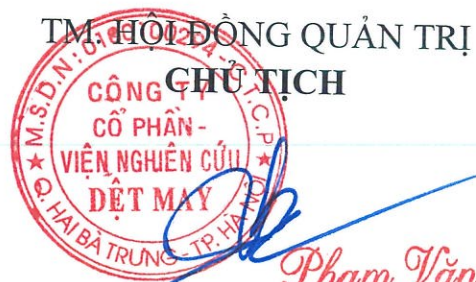 TM. HỘI ĐỒNG QUẢN TRỊ
CHỦ TỊCH
CÔNG TY
CỔ PHẦN -
VIỆN NGHIÊN CỨU
DỆT MAY
★ M.S.D.N: C.T.C.P ★
Q. HAI BÀ TRƯNG - TP. HÀ NỘI
Phạm Văn